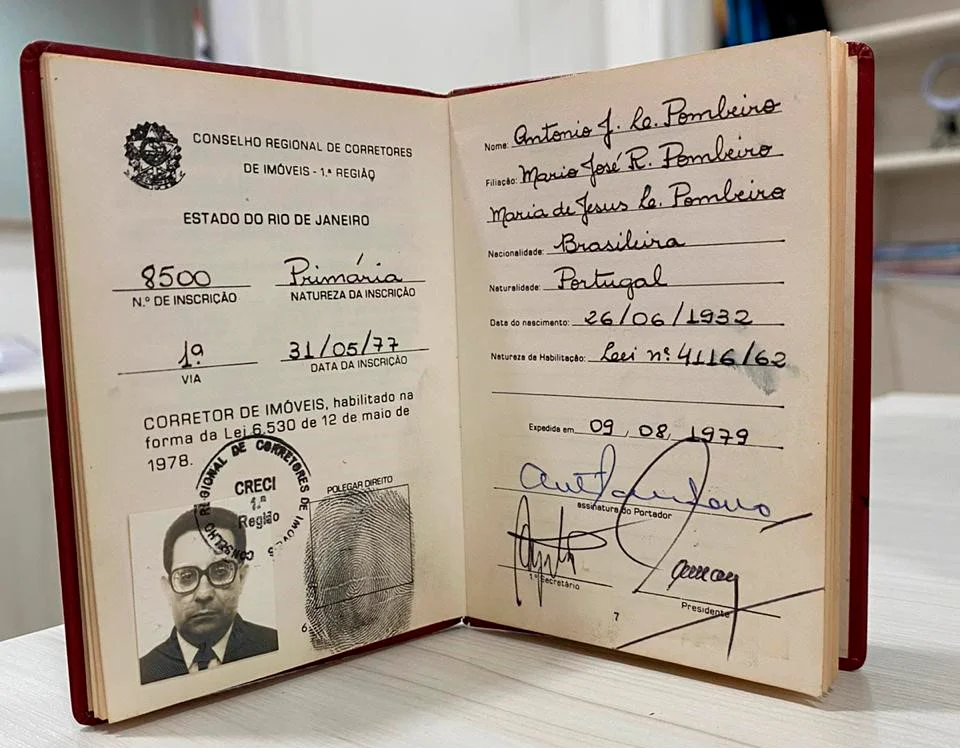 CONSELHO REGIONAL DE CORRETORES
DE IMÓVEIS - 1.ª REGIÃO
ESTADO DO RIO DE JANEIRO
8500
N.º DE INSCRIÇÃO
Primária
NATUREZA DA INSCRIÇÃO
1ª
VIA
31/05/77
DATA DA INSCRIÇÃO
CORRETOR DE IMÓVEIS, habilitado na
forma da Lei 6.530 de 12 de maio de
1978.
CONSELHO REGIONAL DE CORRETORES DE IMÓVEIS
CRECI
1.ª
Região
POLEGAR DIREITO
6
Nome: Antonio J. Le. Pombeiro
Filiação: Mario José R. Pombeiro
Maria de Jesus Le. Pombeiro
Nacionalidade: Brasileira
Naturalidade: Portugal
Data do nascimento: 26/06/1932
Natureza da Habilitação: Lei nº 4116/62
Expedida em 09, 08, 1979
assinatura do Portador
1º Secretário
Presidente
7